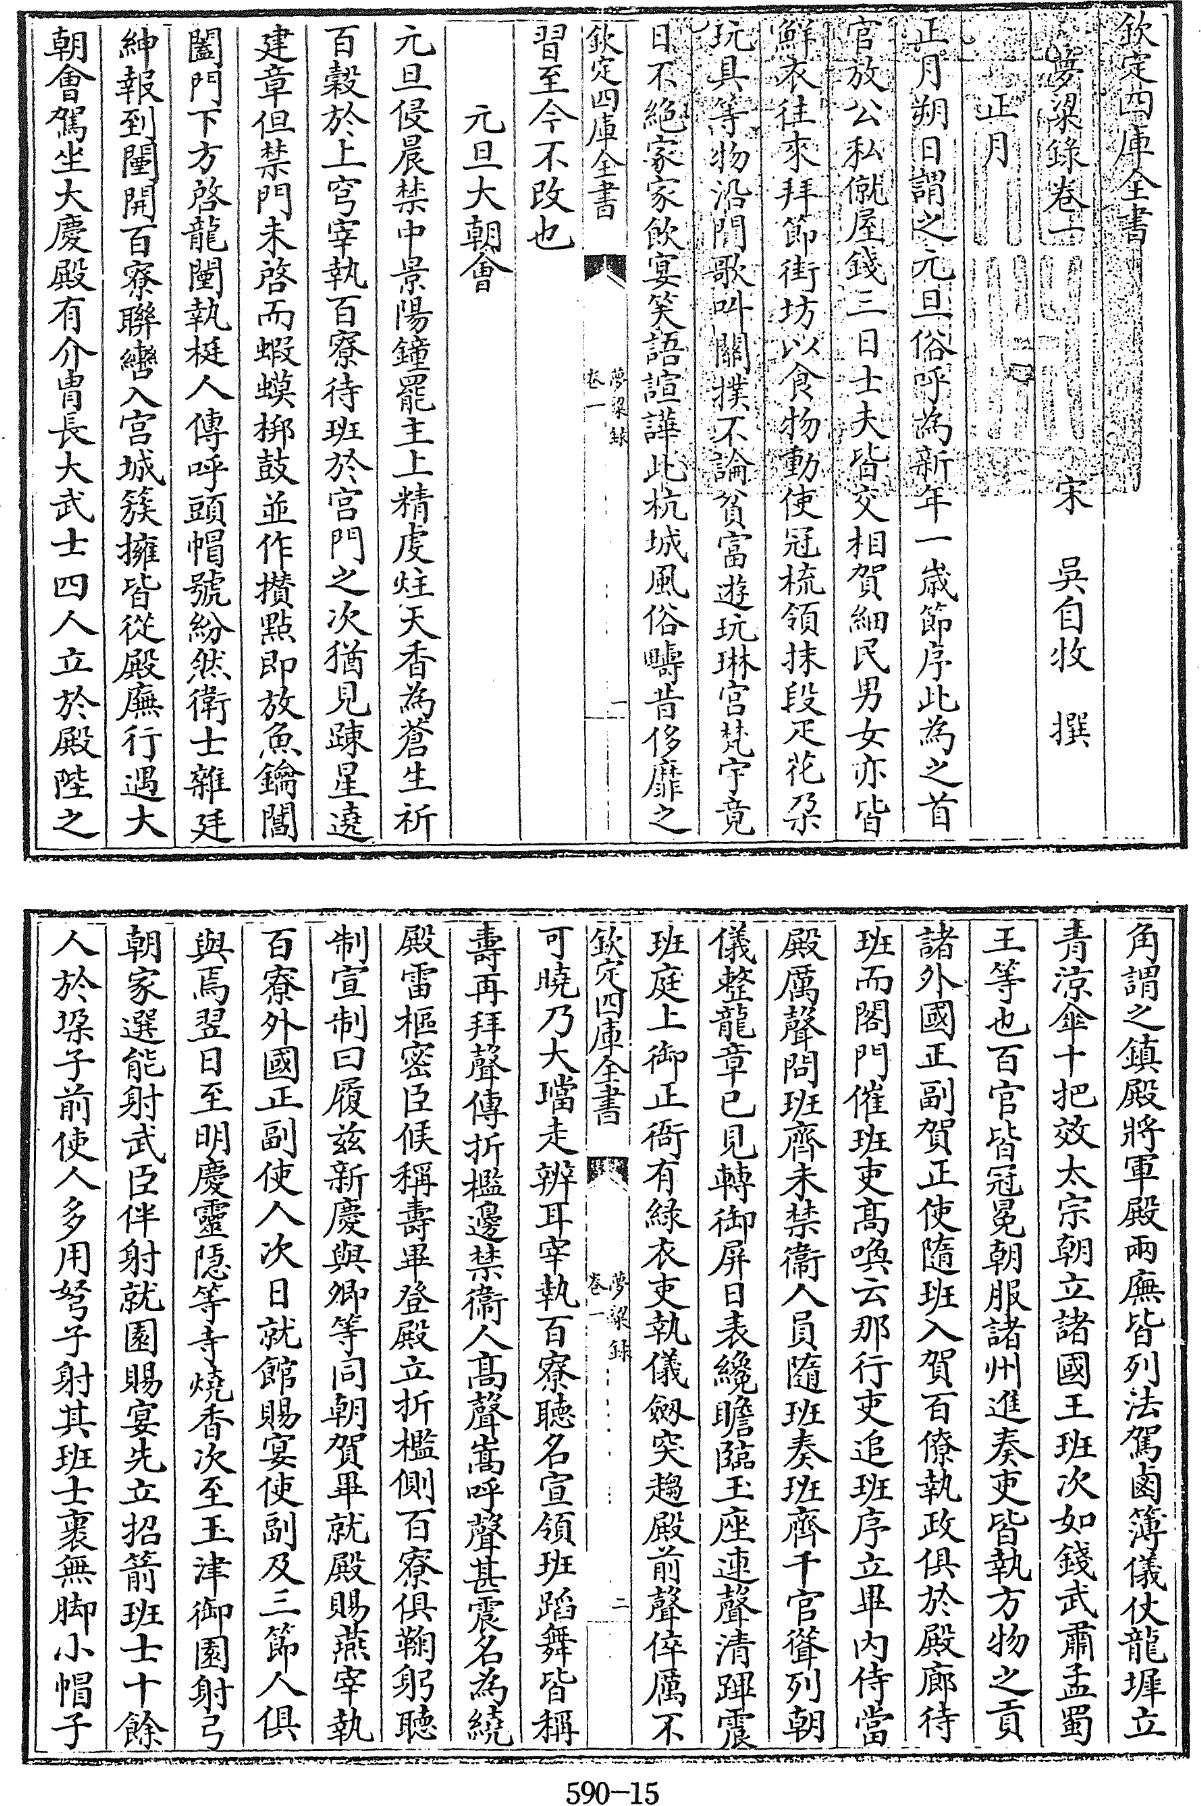 欽定四庫全書
夢粱錄卷一
宋 吳自牧 撰
正月
正月朔日謂之元旦俗呼為新年一歲節序此為之首
官放公私僦屋錢三日士夫皆交相賀細民男女亦皆
鮮衣往來拜節街坊以食物動使冠梳領抹段疋花朵
玩具等物沿門歌叫關撲不論貧富遊玩琳宮梵宇竟
日不絕家家飲宴笑語諠譁此杭城風俗疇昔侈靡之
欽定四庫全書
夢粱錄
卷一
一
習至今不改也
元旦大朝會
元旦侵晨禁中景陽鐘罷主上精虔炷天香為蒼生祈
百穀於上穹宰執百寮待班於宮門之次猶見疎星遶
建章但禁門未啓而蝦蟆梆鼓並作攢點即放魚鑰闔
闔門下方啓龍闉執梃人傳呼頭帽號紛然衛士雜廷
紳報到闉開百寮聯轡入宮城簇擁皆從殿廡行遇大
朝會駕坐大慶殿有介胄長大武士四人立於殿陛之
角謂之鎮殿將軍殿兩廡皆列法駕鹵簿儀仗龍墀立
青涼傘十把效太宗朝立諸國王班次如錢武肅孟蜀
王等也百官皆冠冕朝服諸州進奏吏皆執方物之貢
諸外國正副賀正使隨班入賀百僚執政俱於殿廊待
班而閤門催班吏髙喚云那行吏追班序立畢內侍當
殿厲聲問班齊未禁衞人員隨班奏班齊千官聳列朝
儀整龍章已見轉御屏日表纔瞻臨玉座連聲清蹕震
班庭上御正衙有綠衣吏執儀劔突趨殿前聲倅厲不
欽定四庫全書
夢粱錄
卷一
二
可曉乃大璫走辨耳宰執百寮聴名宣領班蹈舞皆稱
壽再拜聲傳折檻邊禁衞人髙聲嵩呼聲甚震名為繞
殿雷樞密臣候稱壽畢登殿立折檻側百寮俱鞠躬聴
制宣制曰履兹新慶與卿等同朝賀畢就殿賜燕宰執
百寮外國正副使人次日就館賜宴使副及三節人俱
與焉翌日至明慶靈隱等寺燒香次至玉津御園射弓
朝家選能射武臣伴射就園賜宴先立招箭班士十餘
人於垛子前使人多用弩子射其班士裹無脚小帽子
590-15